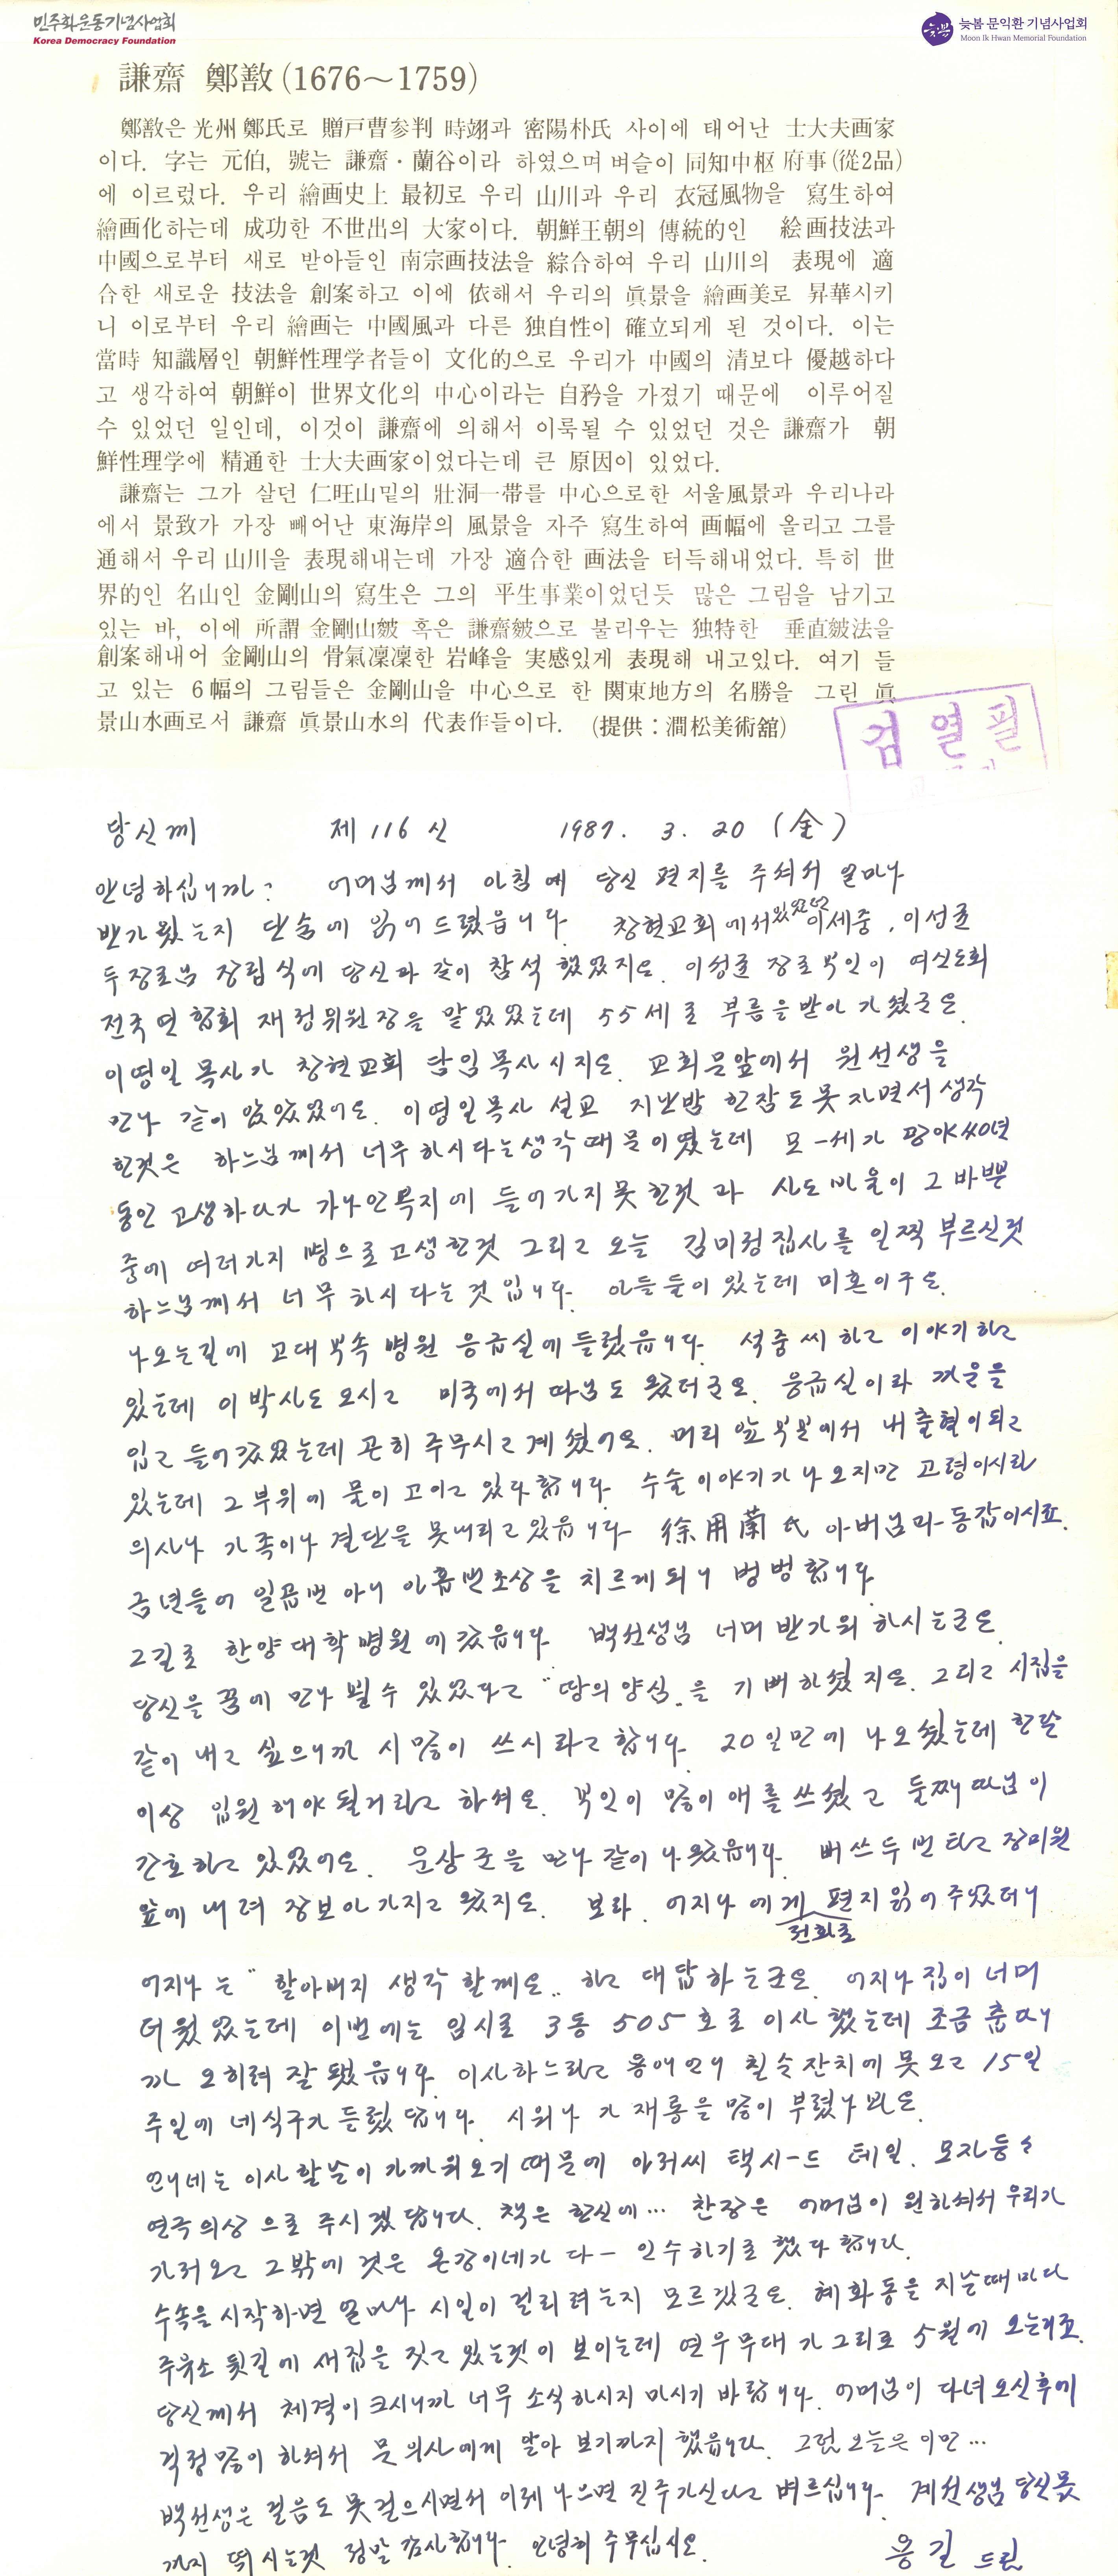 민주화운동기념사업회
Korea Democracy Foundation
늦봄 문익환 기념사업회
Moon Ik Hwan Memorial Foundation
謙齋 鄭敾(1676～1759)
鄭敾은 光州 鄭氏로 贈戸曹参判 時翊과 密陽朴氏 사이에 태어난 士大夫画家
이다. 字는 元伯, 號는 謙齋·蘭谷이라 하였으며 벼슬이 同知中枢 府事(從2品)
에 이르렀다. 우리 繪画史上 最初로 우리 山川과 우리 衣冠風物을 寫生하여
繪画化하는데 成功한 不世出의 大家이다. 朝鮮王朝의 傳統的인 絵画技法과
中國으로부터 새로 받아들인 南宗画技法을 綜合하여 우리 山川의 表現에 適
合한 새로운 技法을 創案하고 이에 依해서 우리의 眞景을 繪画美로 昇華시키
니 이로부터 우리 繪画는 中國風과 다른 独自性이 確立되게 된 것이다. 이는
當時 知識層인 朝鮮性理学者들이 文化的으로 우리가 中國의 清보다 優越하다
고 생각하여 朝鮮이 世界文化의 中心이라는 自矜을 가졌기 때문에 이루어질
수 있었던 일인데, 이것이 謙齋에 의해서 이룩될 수 있었던 것은 謙齋가 朝
鮮性理学에 精通한 士大夫画家이었다는데 큰 原因이 있었다.
謙齋는 그가 살던 仁旺山밑의 壯洞一帯를 中心으로한 서울風景과 우리나라
에서 景致가 가장 빼어난 東海岸의 風景을 자주 寫生하여 画幅에 올리고 그를
通해서 우리 山川을 表現해내는데 가장 適合한 画法을 터득해내었다. 특히 世
界的인 名山인 金剛山의 寫生은 그의 平生事業이었던듯 많은 그림을 남기고
있는 바, 이에 所謂 金剛山皴 혹은 謙齋皴으로 불리우는 独特한 垂直皴法을
創案해내어 金剛山의 骨氣凜凜한 岩峰을 実感있게 表現해 내고있다. 여기 들
고 있는 6幅의 그림들은 金剛山을 中心으로 한 関東地方의 名勝을 그린 眞
景山水画로서 謙齋 眞景山水의 代表作들이다. (提供：澗松美術舘)
검열필
당신께 제 116 신 1987. 3. 20 (金)
안녕하십니까? 어머님께서 아침에 당신 편지를 주셔서 얼마나
반가웠는지 단숨에 읽어 드렸읍니다. 창현교회에서 있었던 이세중, 이성균
두 장로님 장립식에 당신과 같이 참석했었지요. 이성균 장로 부인이 여신도회
전국연합회 재정위원장을 맡았었는데 55세로 부름을 받아 가셨군요.
이영일 목사가 창현교회 담임목사시지요. 교회문앞에서 원선생을
만나 같이 앉았었어요. 이영일목사 설교 지난밤 한잠도 못 자면서 생각
한것은 하느님께서 너무 하시다는 생각 때문이었는데 모-세가 광야 40년
동안 고생하다가 가나안복지에 들어가지 못한것과 사도바울이 그 바쁜
중에 여러가지 병으로 고생한것 그리고 오늘 김미정집사를 일찍 부르신것
하느님께서 너무 하시다는 것입니다. 아들들이 있는데 미혼이구요.
나오는길에 고대부속병원 응급실에 들렀읍니다. 석중씨하고 이야기하고
있는데 이박사도 오시고 미국에서 따님도 왔더군요. 응급실이라 까운을
입고 들어갔었는데 곤히 주무시고 계셨어요. 머리 앞부분에서 내출혈이 되고
있는데 그 부위에 물이 고이고 있다 합니다. 수술이야기가 나오지만 고령이시라
의사나 가족이나 결단을 못내리고 있읍니다. 徐用蘭氏 아버님과 동갑이시죠.
금년들어 일곱번 아니 아홉번 초상을 치르게되니 벙벙합니다.
그길로 한양대학병원에 갔읍니다. 백선생님 너머 반가워 하시는군요.
당신을 꿈에 만나 뵐 수 있었다고 "땅의 양심"을 기뻐하셨지요. 그리고 시집을
같이 내고 싶으니까 시 많이 쓰시라고 합니다. 20일만에 나오셨는데 한달
이상 입원해야 될거라고 하셔요. 부인이 많이 애를 쓰셨고 둘째 따님이
간호하고 있었어요. 문상균을 만나 같이 나왔읍니다. 버쓰 두번 타고 장미원
앞에 내려 장보아 가지고 왔지요. 보라. 어지나에게 전화로 편지 읽어 주었더니
어지나는 "할아버지 생각할께요" 하고 대답하는군요. 어지나 집이 너머
더웠었는데 이번에는 임시로 3동 505호로 이사했는데 조금 춥다니
까 오히려 잘됐읍니다. 이사하느라고 용애언니 칠순잔치에 못오고 15일
주일에 네식구가 들렀답니다. 시위나가 재롱을 많이 부렸나봐요.
언니네는 이사할날이 가까워오기 때문에 아저씨 택시-드 테일. 모자등은
연극의상으로 주시겠답니다. 책은 한실에… 찬장은 어머님이 원하셔서 우리가
가져오고 그밖에 것은 온강이네가 다- 인수하기로 했다 합니다.
수속을 시작하면 얼마나 시일이 걸리려는지 모르겠군요. 혜화동을 지날때마다
주유소 뒷길에 새집을 짓고 있는것이 보이는데 연우무대가 그리로 5월에 오는거죠.
당신께서 체격이 크시니까 너무 소식하시지 마시기 바랍니다. 어머님이 다녀오신후에
걱정많이 하셔서 문의사에게 알아 보기까지 했읍니다. 그럼 오늘은 이만…
백선생은 걸음도 못걸으시면서 이제 나으면 진주가신다고 벼르십니다. 계선생님 당신몫
까지 뛰시는것 정말 감사합니다. 안녕히 주무십시오. 용길 드림